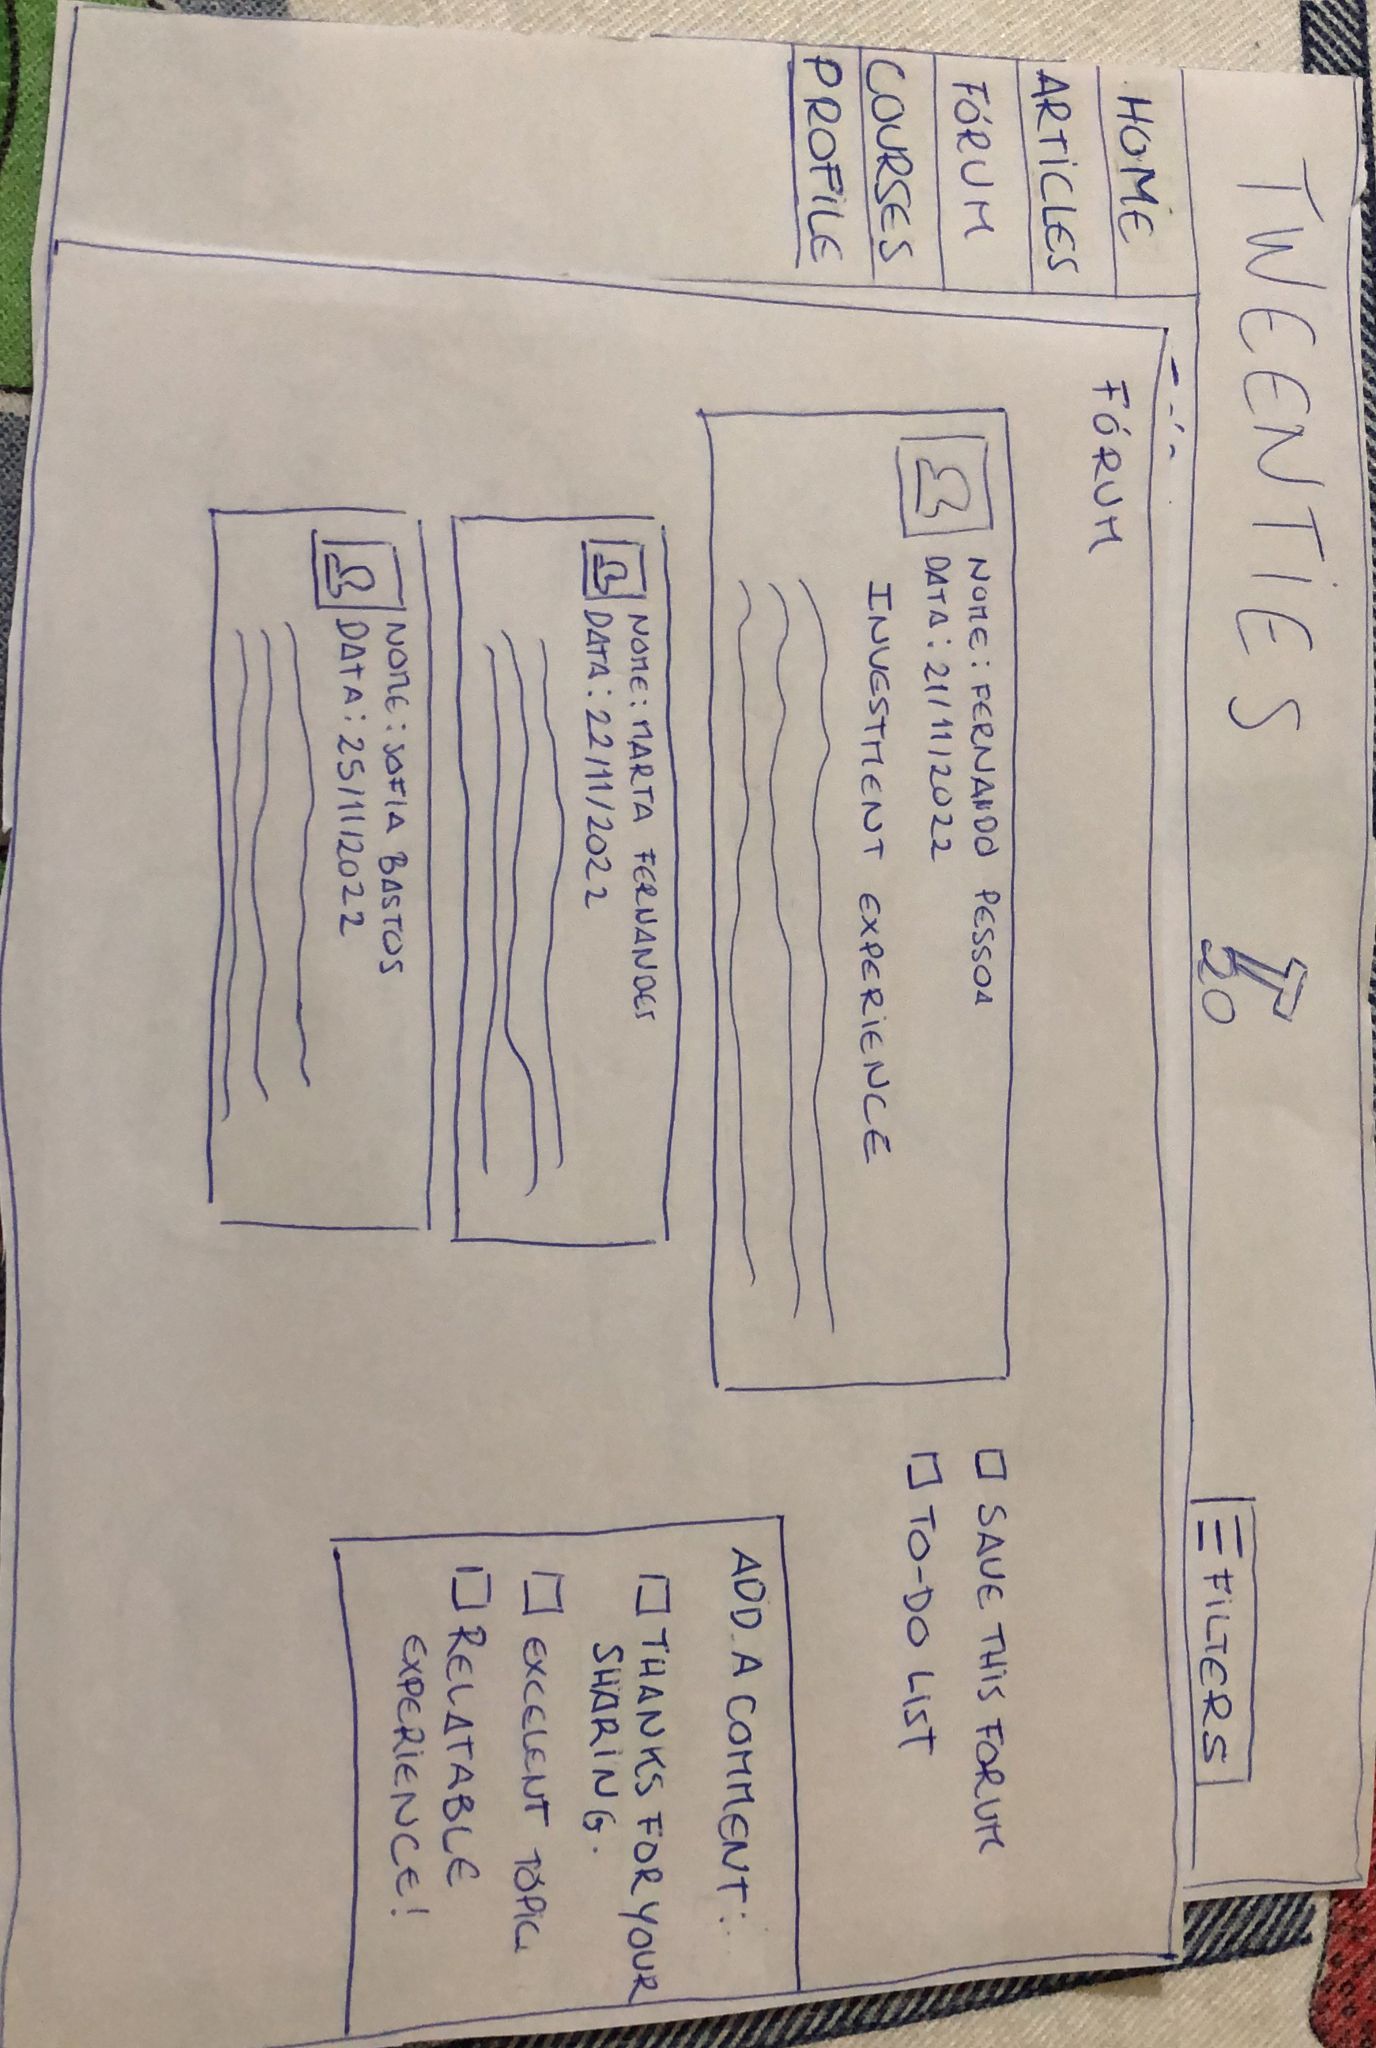 TWEENTIES
20
FILTERS
HOME
ARTICLES
FÓRUM
COURSES
PROFILE
FÓRUM
NOME: FERNANDO PESSOA
DATA: 21/11/2022
INVESTMENT EXPERIENCE
NOME: MARTA FERNANDES
DATA: 22/11/2022
NOME: SOFIA BASTOS
DATA: 25/11/2022
SAVE THIS FORUM
TO-DO LIST
ADD A COMMENT:
THANKS FOR YOUR
SHARING.
EXCELENT TOPIC
RELATABLE
EXPERIENCE!